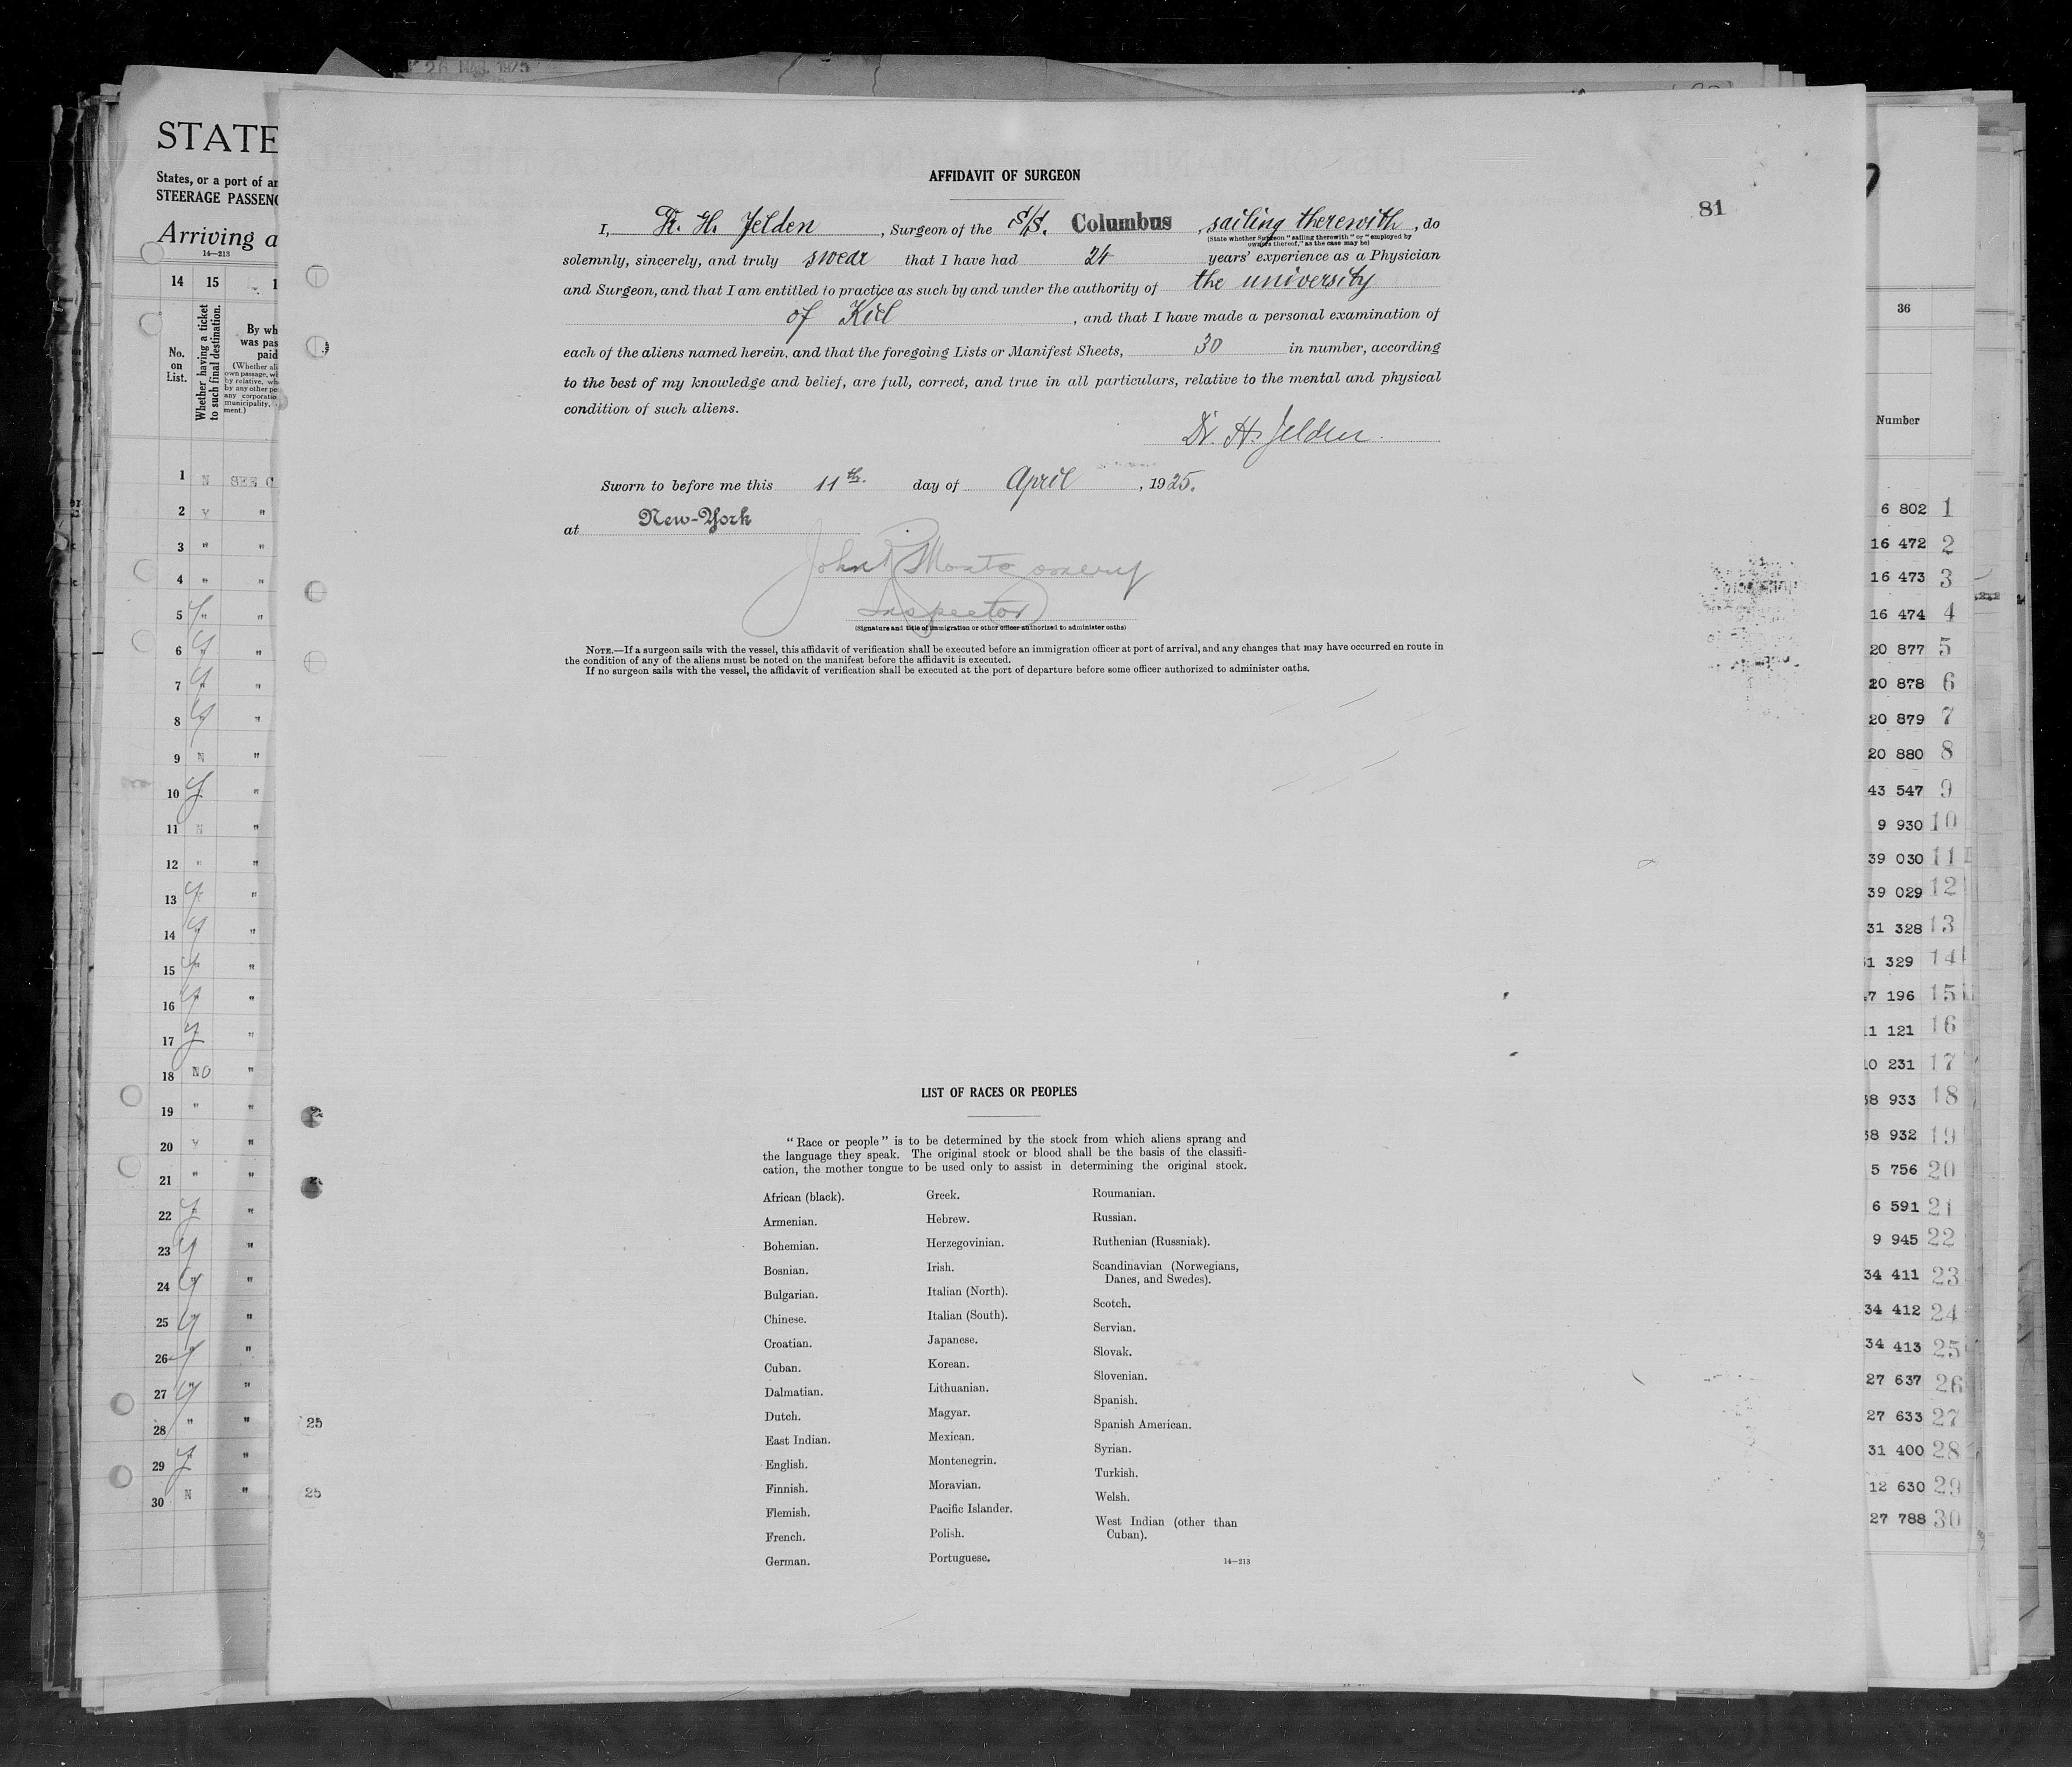 26 MAR. 1925
STATE
States, or a port of
STEERAGE PASSEN
Arriving a
14—213
14 15
No. on List.
Whether having a ticket to such final destination.
By wh
was pas
paid
(Whether ali
own passage, w
by relative, wh
by any other pe
any corporatio
municipality,
ment.)
1 N SEE
2 y "
3 " "
4 " "
5 y "
6 y "
7 y "
8 y "
9 N "
10 y "
11 N "
12 " "
13 y "
14 y "
15 y "
16 y "
17 y "
18 NO "
19 " "
20 y "
21 " "
22 y "
23 y "
24 y "
25 y "
26 y "
27 y "
28 " "
29 y "
30 N "
81
AFFIDAVIT OF SURGEON
I, Dr. H. Jelden, Surgeon of the S/S. Columbus, sailing therewith, do
(State whether Surgeon "sailing therewith" or "employed by
owners thereof," as the case may be)
solemnly, sincerely, and truly swear that I have had 24 years' experience as a Physician
and Surgeon, and that I am entitled to practice as such by and under the authority of the university
of Kiel, and that I have made a personal examination of
each of the aliens named herein, and that the foregoing Lists or Manifest Sheets, 30 in number, according
to the best of my knowledge and belief, are full, correct, and true in all particulars, relative to the mental and physical
condition of such aliens.
Dr. H. Jelden.
Sworn to before me this 11th. day of April, 1925.
at New-York
John Montgomery
Inspector
(Signature and title of immigration or other officer authorized to administer oaths)
NOTE.—If a surgeon sails with the vessel, this affidavit of verification shall be executed before an immigration officer at port of arrival, and any changes that may have occurred en route in
the condition of any of the aliens must be noted on the manifest before the affidavit is executed.
If no surgeon sails with the vessel, the affidavit of verification shall be executed at the port of departure before some officer authorized to administer oaths.
LIST OF RACES OR PEOPLES
"Race or people" is to be determined by the stock from which aliens sprang and
the language they speak. The original stock or blood shall be the basis of the classifi-
cation, the mother tongue to be used only to assist in determining the original stock.
African (black).
Armenian.
Bohemian.
Bosnian.
Bulgarian.
Chinese.
Croatian.
Cuban.
Dalmatian.
Dutch.
East Indian.
English.
Finnish.
Flemish.
French.
German.
Greek.
Hebrew.
Herzegovinian.
Irish.
Italian (North).
Italian (South).
Japanese.
Korean.
Lithuanian.
Magyar.
Mexican.
Montenegrin.
Moravian.
Pacific Islander.
Polish.
Portuguese.
Roumanian.
Russian.
Ruthenian (Russniak).
Scandinavian (Norwegians,
Danes, and Swedes).
Scotch.
Servian.
Slovak.
Slovenian.
Spanish.
Spanish American.
Syrian.
Turkish.
Welsh.
West Indian (other than
Cuban).
14—213
25
25
36
Number
6 802 1
16 472 2
16 473 3
16 474 4
20 877 5
20 878 6
20 879 7
20 880 8
43 547 9
9 930 10
39 030 11
39 029 12
31 328 13
1 329 14
7 196 15
1 121 16
0 231 17
38 933 18
38 932 19
5 756 20
6 591 21
9 945 22
34 411 23
34 412 24
34 413 25
27 637 26
27 633 27
31 400 28
12 630 29
27 788 30